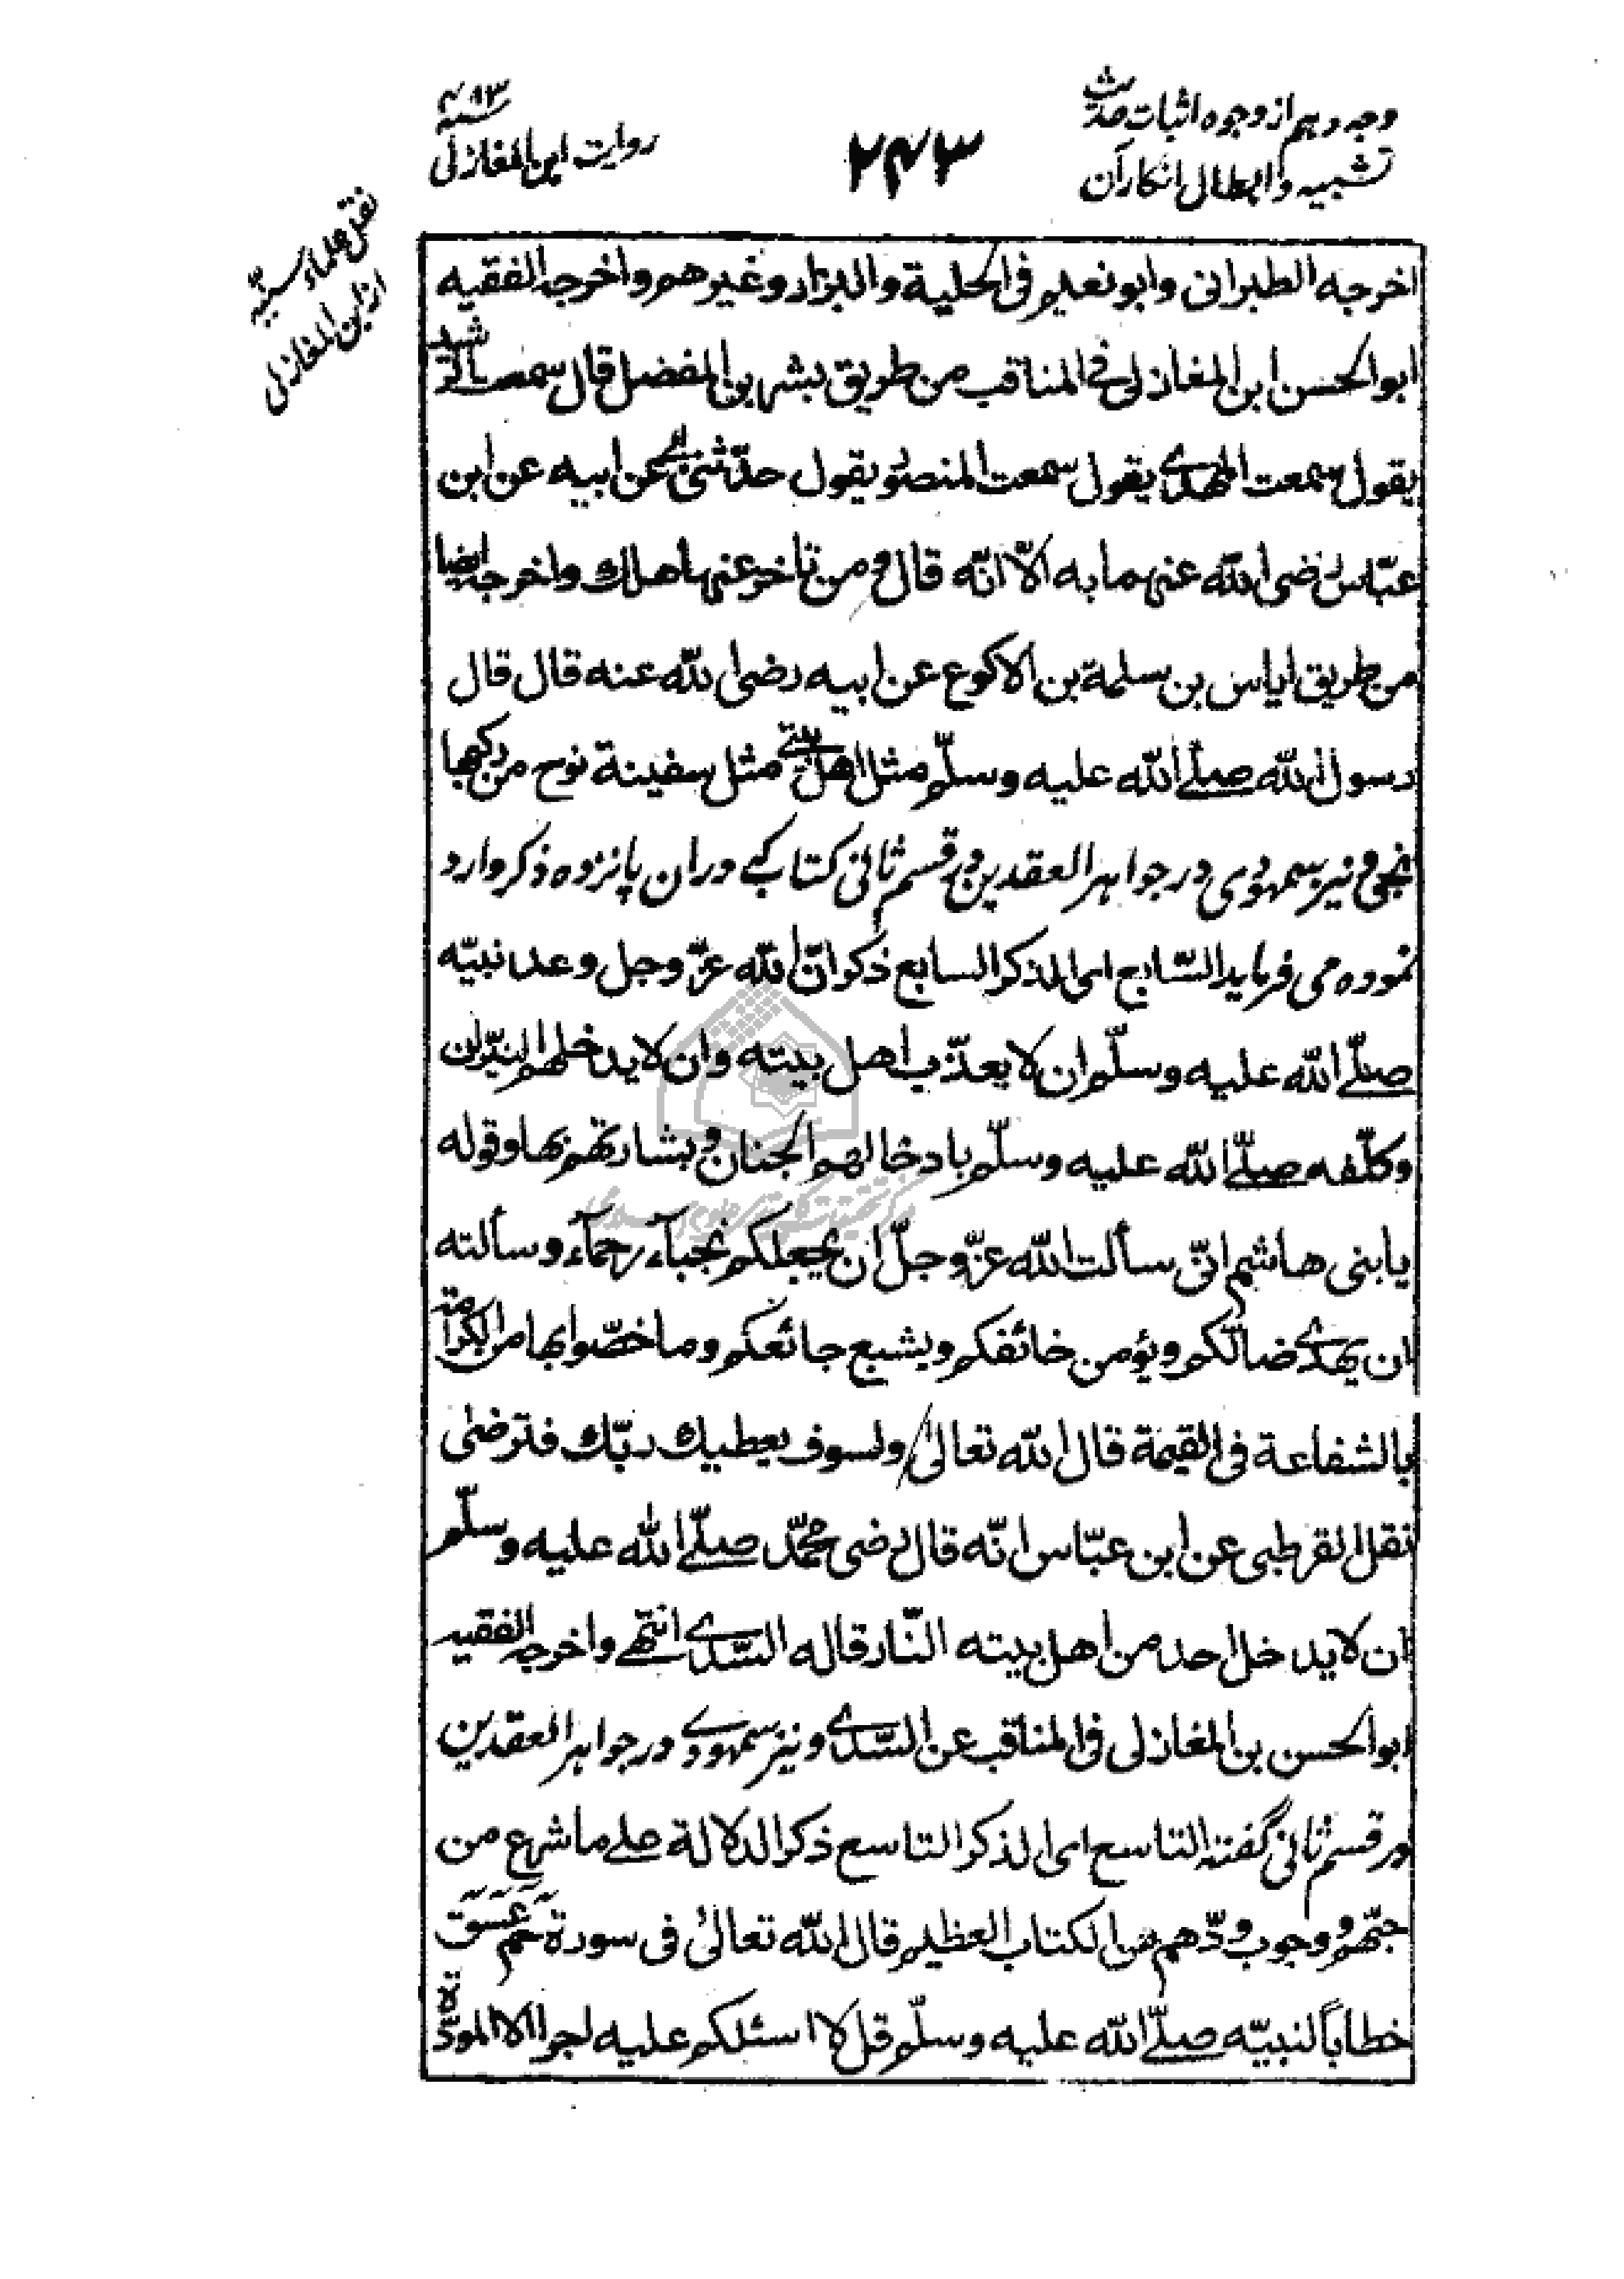 وجه دهم از وجوه اثبات حدیث
تشبیه و ابطال انکار آن
۲۴۳
سنه ۴۸۳
روایت ابن المغازلی
نقل علماء سنیّه
از ابن المغازلی
اخرجه الطبرانی وابو نعیم فی الحلیة والبزار وغیرهم واخرجه الفقیه
ابو الحسن ابن المغازلی فی المناقب من طریق بشر بن المفضل قال سمعت الرشید
یقول سمعت المهدی یقول سمعت المنصور یقول حدّثنی ابی عن ابیه عن ابن
عبّاس رضی الله عنهما به الّا انّه قال و من تاخر عنها هلك واخرجه ایضا
من طریق ایاس بن سلمة بن الاکوع عن ابیه رضی الله عنه قال قال
رسول الله صلّے الله علیه وسلّم مثل اهل بیتے مثل سفینة نوح من رکبها
نجی و نیز سمهودی در جواهر العقدین در قسم ثانی کتاب که دران پانزده ذکر وارد
نموده می فرماید السّابع ای الذکر السابع ذکر انّ الله عزّ وجل وعد نبیّه
صلّے الله علیه وسلّم ان لا یعذّب اهل بیته وان لا یدخلهم النیّران
وکلّفه صلّے الله علیه وسلّم بادخالهم الجنان وبشارتهم بها وقوله
یا بنی هاشم انّی سألت الله عزّ وجلّ ان یجعلکم نجبآء رحمآء وسألته
ان یهدی ضالّکم ویؤمن خائفکم ویشبع جائعکم وما خصّوا بها من الکرامة
بالشفاعة فی القیمة قال الله تعالیٰ ولسوف یعطیك ربّك فترضیٰ
نقل القرطبی عن ابن عبّاس انّه قال رضی محمّد صلّے الله علیه وسلّم
ان لا یدخل احد من اهل بیته النّار قاله السّدی انتهے واخرجه الفقیه
ابو الحسن بن المغازلی فی المناقب عن السّدی و نیز سمهودی در جواهر العقدین
در قسم ثانی گفته التاسع ای الذکر التاسع ذکر الدلالة علے ما شرع من
حبّهم ووجوب ودّهم من الکتاب العظیم قال الله تعالیٰ فی سورة حم عسق
خطاباً لنبیّه صلّے الله علیه وسلّم قل لا اسئلکم علیه اجرا الا المودّة